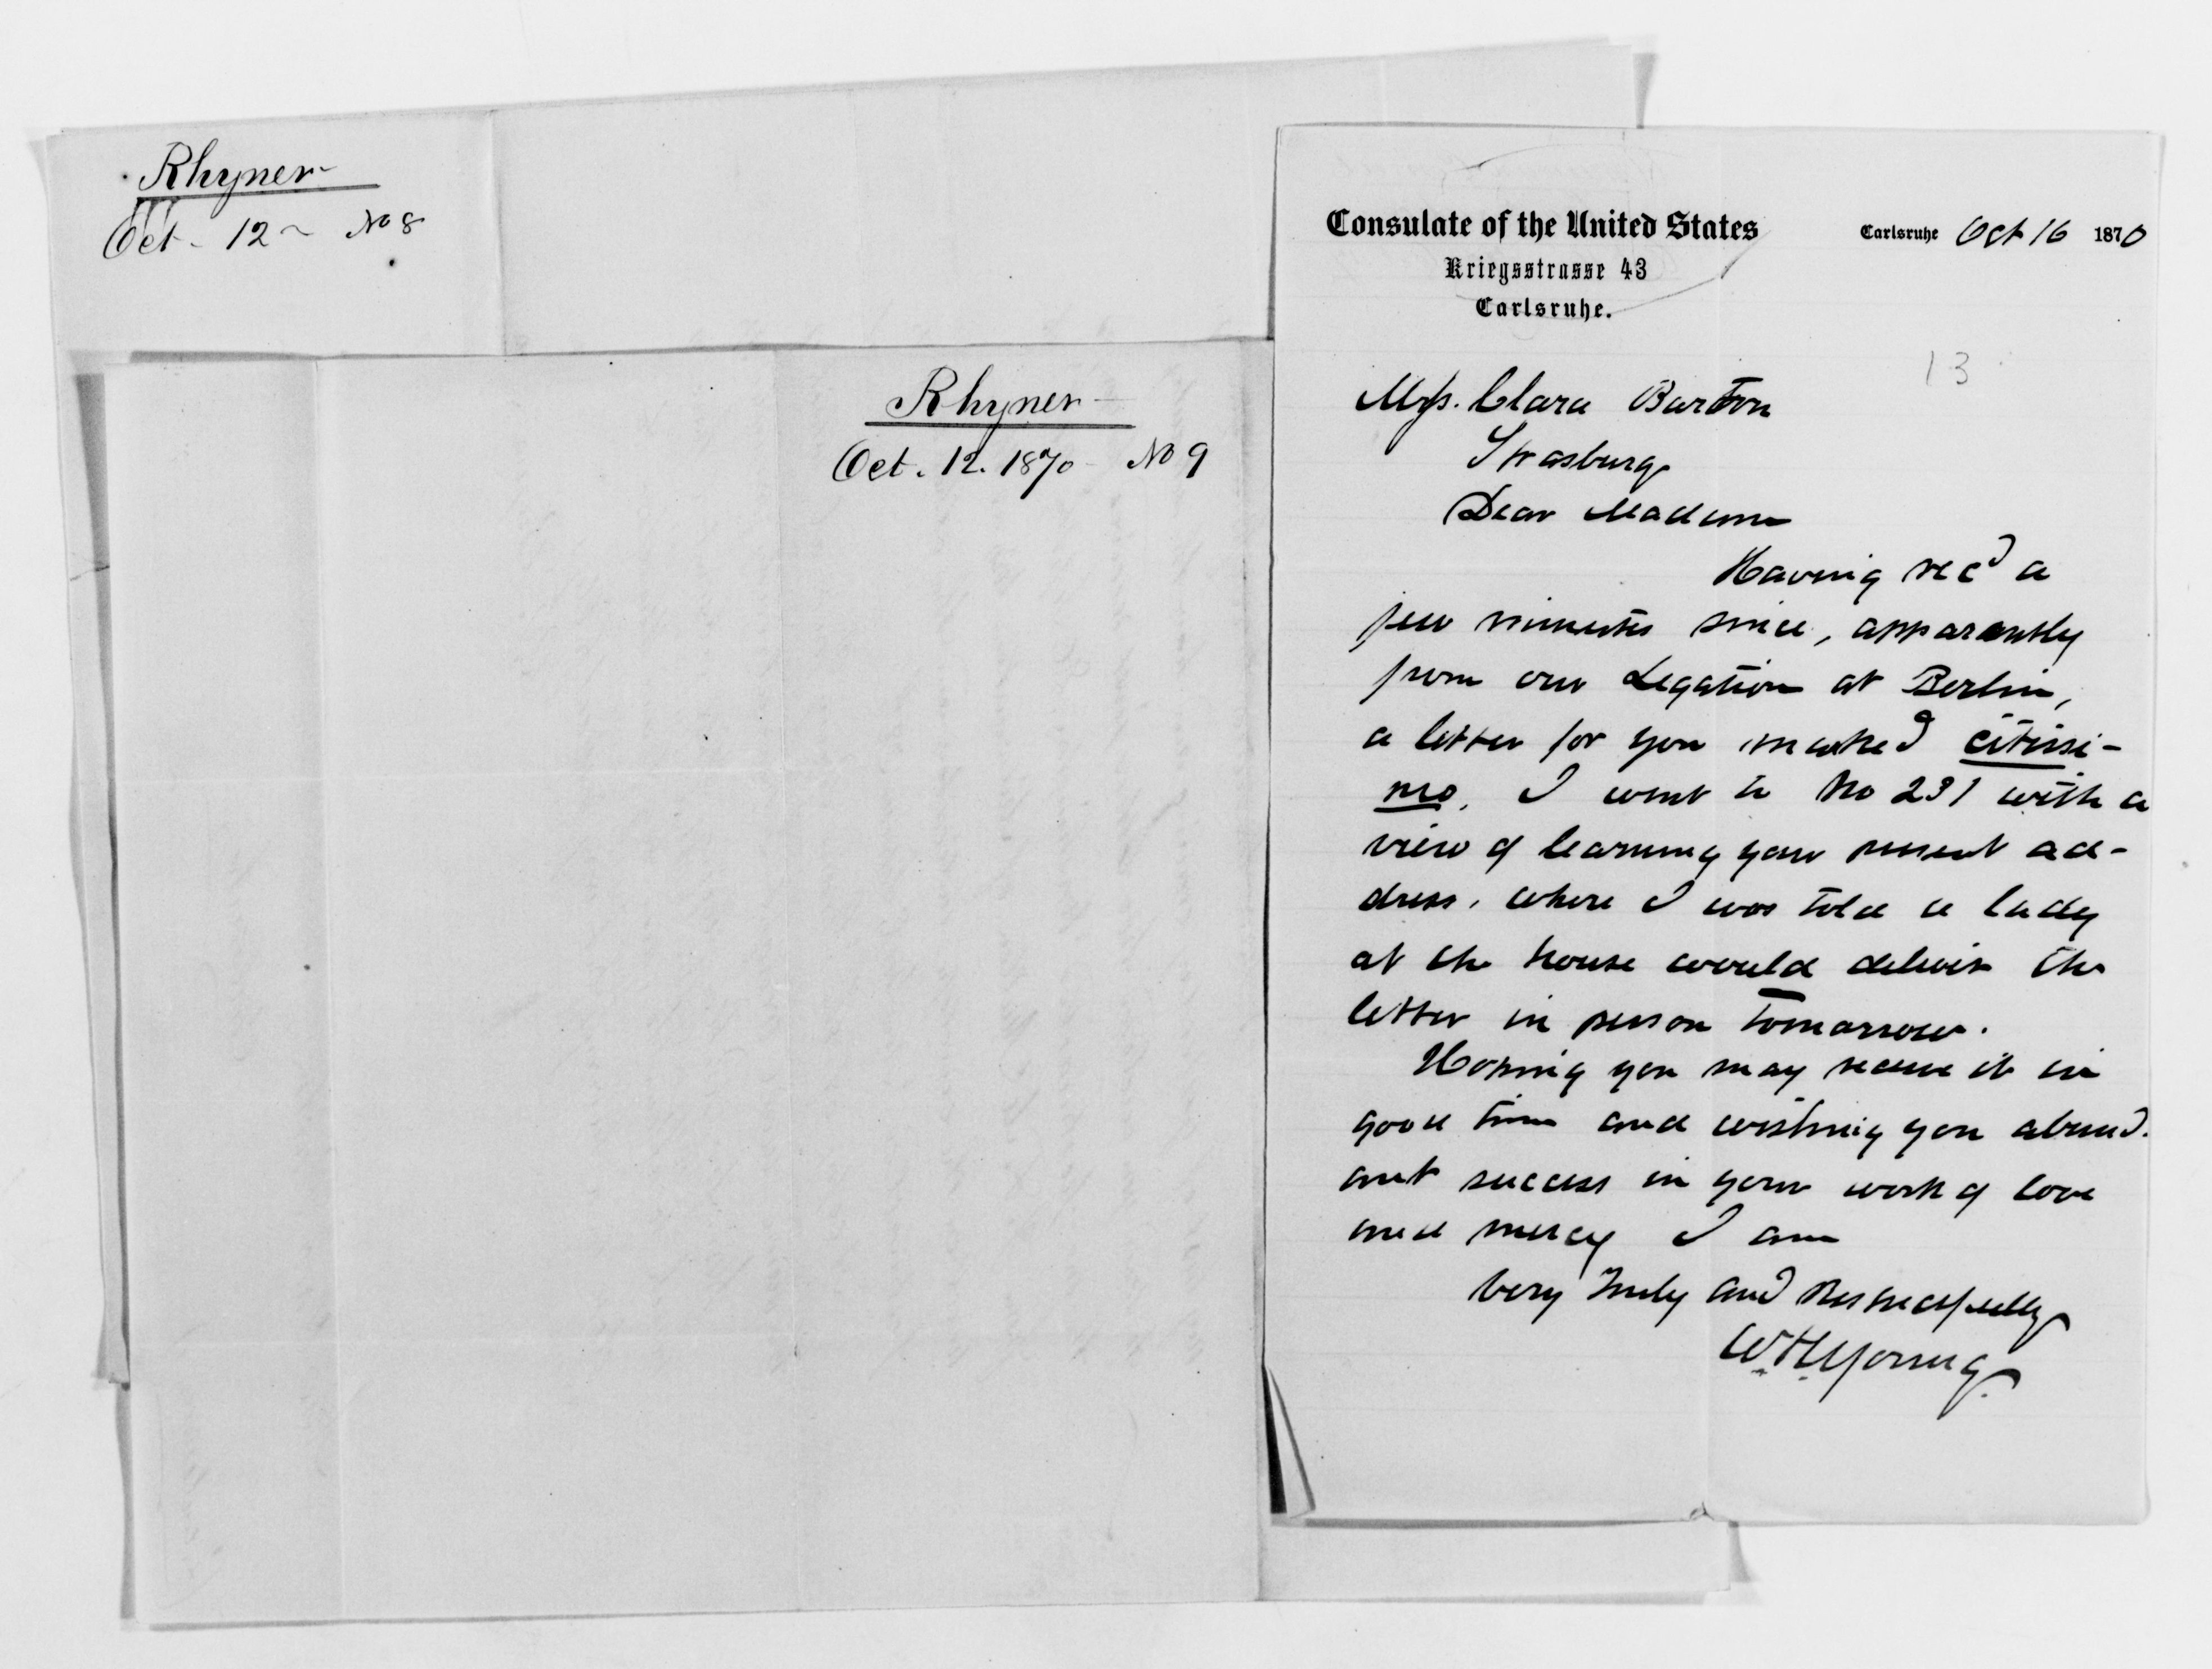 Rhyner
Oct - 12 ~ No 8
Rhyner
Oct. 12. 1870 - No 9
Consulate of the United States
Kriegsstrasse 43
Carlsruhe.
Carlsruhe Oct 16 1870
13
Mrs. Clara Barton
Strasburg
Dear Madame
Having rec'd a
few minutes since, apparantly
from our Legation at Berlin,
a letter for you marked citissi-
mo, I went to No 231 with a
view of learning your present ad-
dress, where I was told a lady
at the house would deliver the
letter in person tomorrow.
Hoping you may receive it in
good time and wishing you abund-
ant success in your work of love
and mercy I am
Very Truly and Respectfully
W. H. Young.